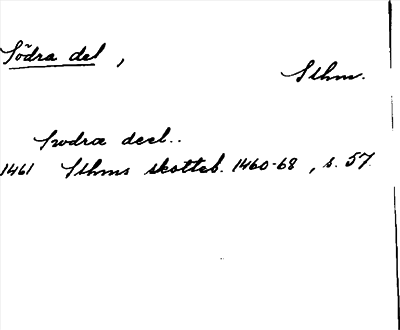 Södra del,
Sthm.
Swdra deel..
1461 Sthms skotteb. 1460-68, s. 57.